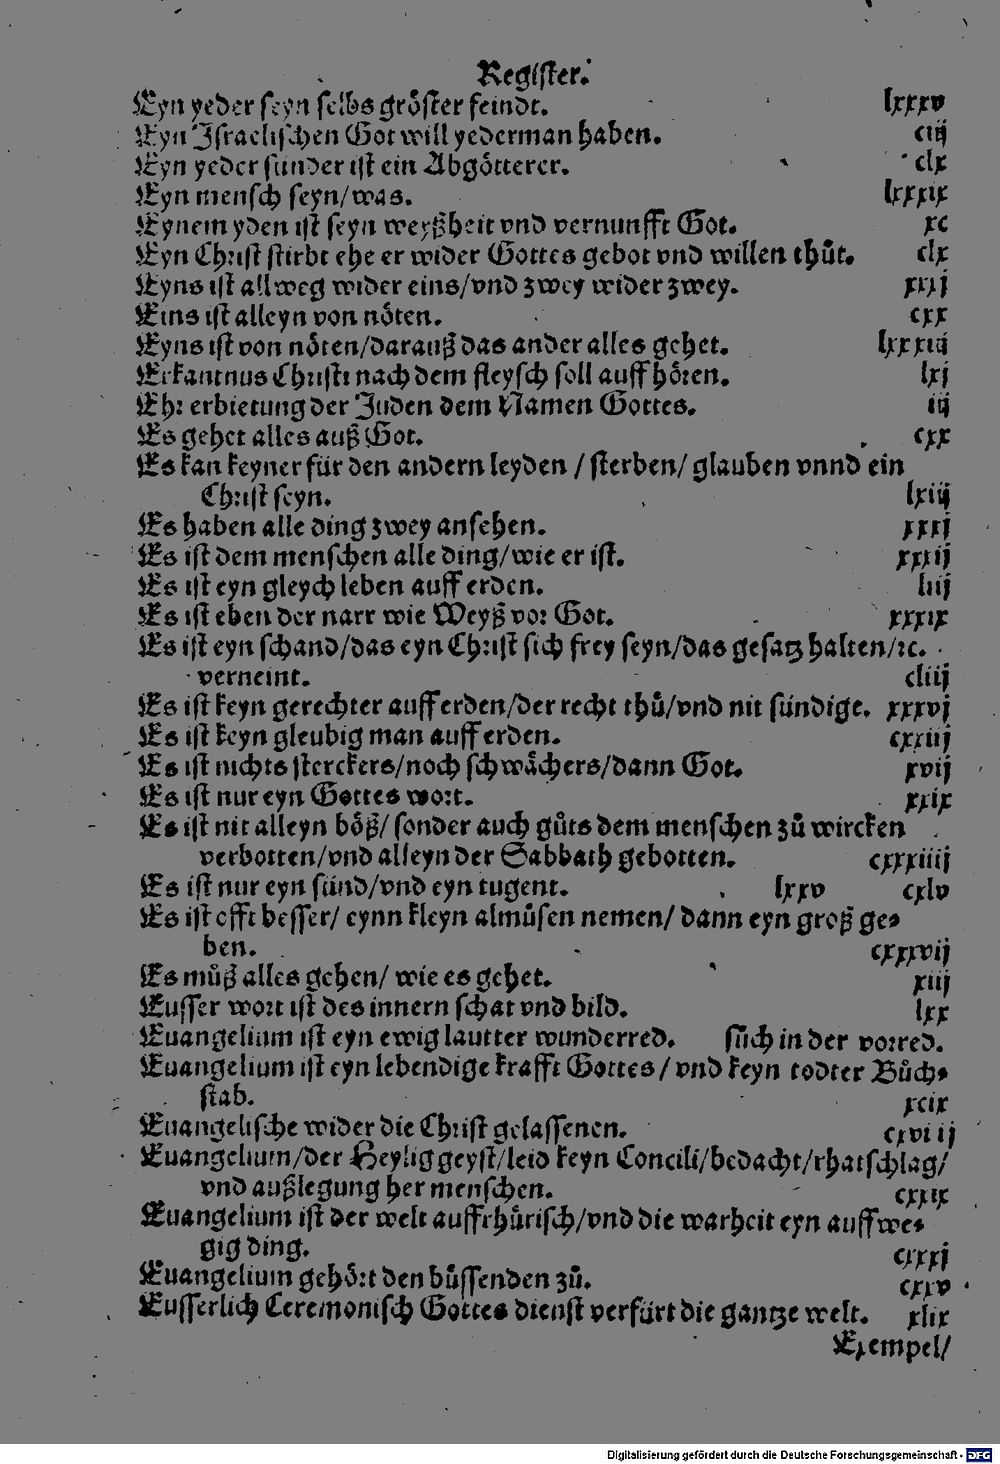 Register.
Eyn yeder seyn selbs gröster feindt. lxxxv
Eyn Israelischen Got will yederman haben. ciij
Eyn yeder sünder ist ein Abgötterer. clx
Eyn mensch seyn/was. lxxxix
Eynem yden ist seyn weyßheit vnd vernunfft Got. xc
Eyn Christ stirbt ehe er wider Gottes gebot vnd willen thůt. clx
Eyns ist allweg wider eins/vnd zwey wider zwey. xxxj
Eins ist alleyn von nöten. cxx
Eyns ist von nöten/darauß das ander alles gehet. lxxxiij
Erkantnus Christi nach dem fleysch soll auff hören. lxj
Ehr erbietung der Juden dem Namen Gottes. iij
Es gehet alles auß Got. cxx
Es kan keyner für den andern leyden / sterben/ glauben vnnd ein
Christ seyn. lxiij
Es haben alle ding zwey ansehen. xxxj
Es ist dem menschen alle ding/wie er ist. xxxij
Es ist eyn gleych leben auff erden. liij
Es ist eben der narr wie Weyß vor Got. xxxix
Es ist eyn schand/das eyn Christ sich frey seyn/das gesatz halten/ꝛc.
verneint. cliij
Es ist keyn gerechter auff erden/der recht thů/vnd nit sündige. xxxvj
Es ist keyn gleubig man auff erden. cxxiij
Es ist nichts sterckers/noch schwächers/dann Got. xvij
Es ist nur eyn Gottes wort. xxix
Es ist nit alleyn böß/ sonder auch gůts dem menschen zů wircken
verbotten/vnd alleyn der Sabbath gebotten. cxxxiiij
Es ist nur eyn sünd/vnd eyn tugent. lxxv cxlv
Es ist offt besser/ eynn kleyn almůsen nemen/ dann eyn groß ge⸗
ben. cxxxvij
Es můß alles gehen/ wie es gehet. xiij
Eusser wort ist des innern schat vnd bild. lxx
Euangelium ist eyn ewig lautter wunderred. sůch in der vorred.
Euangelium ist eyn lebendige krafft Gottes / vnd keyn todter Bůch⸗
stab. xcix
Euangelische wider die Christ gelassenen. cxviij
Euangelium/der Heylig geyst/leid keyn Concili/bedacht/rhatschlag/
vnd außlegung her menschen. cxxix
Euangelium ist der welt auffrhůrisch/vnd die warheit eyn auffwe⸗
gig ding. cxxxj
Euangelium gehört den bůssenden zů. cxxv
Eusserlich Ceremonisch Gottes dienst verfůrt die gantze welt. xlix
Exempel/
Digitalisierung gefördert durch die Deutsche Forschungsgemeinschaft - DFG